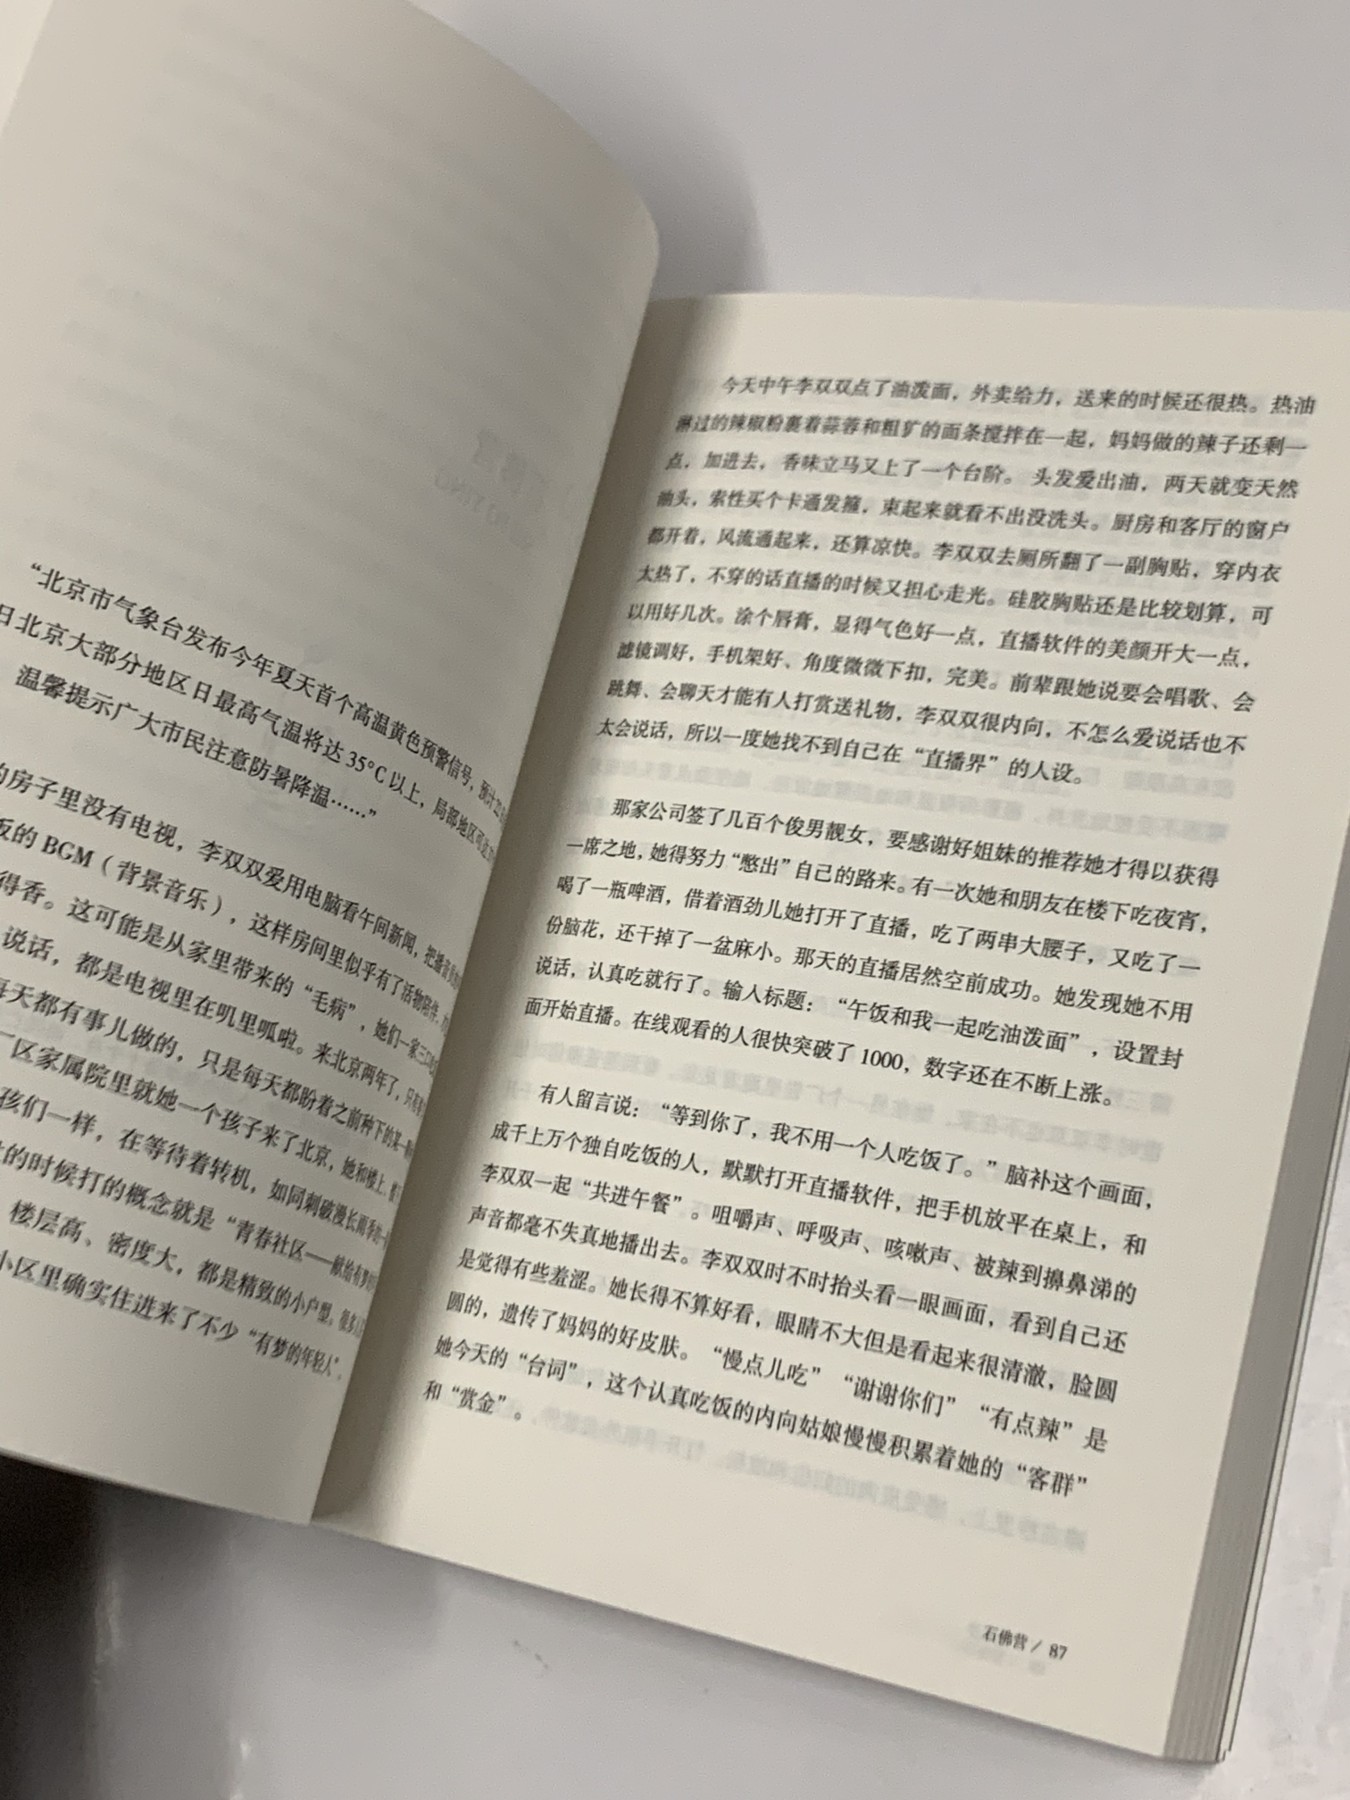 “北京市气象台发布今年夏天首个高温黄色预警信号，预计22
日北京大部分地区日最高气温将达 35°C 以上，局部地区可达
温馨提示广大市民注意防暑降温……”
的房子里没有电视，李双双爱用电脑看午间新闻，把播音员的
饭的 BGM（背景音乐），这样房间里似乎有了活物陪伴，
得香。这可能是从家里带来的“毛病”，她们一家三口
说话，都是电视里在叽里呱啦。来北京两年了，只有
每天都有事儿做的，只是每天都盼着之前种下的某一
厂区家属院里就她一个孩子来了北京，她和楼上、
孩们一样，在等待着转机，如同刺破漫长雨季的一
的时候打的概念就是“青春社区——献给有梦的
楼层高、密度大，都是精致的小户型，很多人
小区里确实住进来了不少“有梦的年轻人”，
今天中午李双双点了油泼面，外卖给力，送来的时候还很热。热油
淋过的辣椒粉裹着蒜蓉和粗犷的面条搅拌在一起，妈妈做的辣子还剩一
点，加进去，香味立马又上了一个台阶。 头发爱出油，两天就变天然
油头，索性买个卡通发箍，束起来就看不出没洗头。厨房和客厅的窗户
都开着，风流通起来，还算凉快。李双双去厕所翻了一副胸贴，穿内衣
太热了，不穿的话直播的时候又担心走光。硅胶胸贴还是比较划算，可
以用好几次。涂个唇膏，显得气色好一点，直播软件的美颜开大一点，
滤镜调好，手机架好、角度微微下扣，完美。前辈跟她说要会唱歌、会
跳舞、会聊天才能有人打赏送礼物，李双双很内向，不怎么爱说话也不
太会说话，所以一度她找不到自己在“直播界”的人设。
那家公司签了几百个俊男靓女，要感谢好姐妹的推荐她才得以获得
一席之地，她得努力“憋出”自己的路来。有一次她和朋友在楼下吃夜宵，
喝了一瓶啤酒，借着酒劲儿她打开了直播，吃了两串大腰子，又吃了一
份脑花，还干掉了一盆麻小。那天的直播居然空前成功。她发现她不用
说话，认真吃就行了。输入标题：“午饭和我一起吃油泼面”，设置封
面开始直播。在线观看的人很快突破了 1000，数字还在不断上涨。
有人留言说：“等到你了，我不用一个人吃饭了。”脑补这个画面，
成千上万个独自吃饭的人，默默打开直播软件，把手机放平在桌上，和
李双双一起“共进午餐”。咀嚼声、呼吸声、咳嗽声、被辣到擤鼻涕的
声音都毫不失真地播出去。李双双时不时抬头看一眼画面，看到自己还
是觉得有些羞涩。她长得不算好看，眼睛不大但是看起来很清澈，脸圆
圆的，遗传了妈妈的好皮肤。“慢点儿吃”“谢谢你们”“有点辣”是
她今天的“台词”，这个认真吃饭的内向姑娘慢慢积累着她的“客群”
和“赏金”。
石佛营 / 87